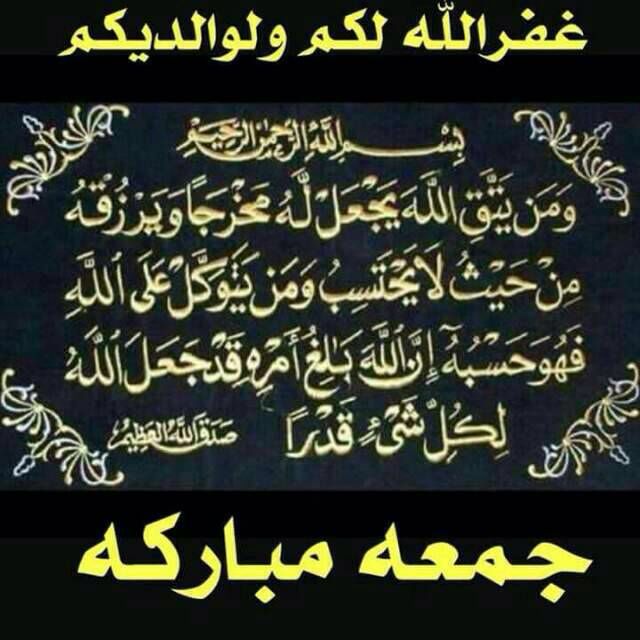 غفرالله لكم ولوالديكم
بِسْمِ اللَّهِ الرَّحْمَٰنِ الرَّحِيمِ
وَمَن يَتَّقِ اللَّهَ يَجْعَل لَّهُ مَخْرَجًا وَيَرْزُقْهُ
مِنْ حَيْثُ لَا يَحْتَسِبُ وَمَن يَتَوَكَّلْ عَلَى اللَّهِ
فَهُوَ حَسْبُهُ إِنَّ اللَّهَ بَالِغُ أَمْرِهِ قَدْ جَعَلَ اللَّهُ
لِكُلِّ شَيْءٍ قَدْرًا صَدَقَ اللَّهُ الْعَظِيمُ
جمعه مباركه